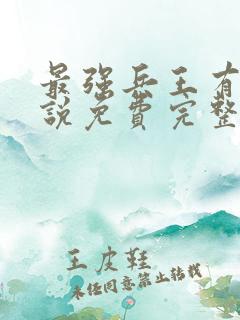 最强兵王有
说免费完整
王皮鞋
未经同意禁止转载